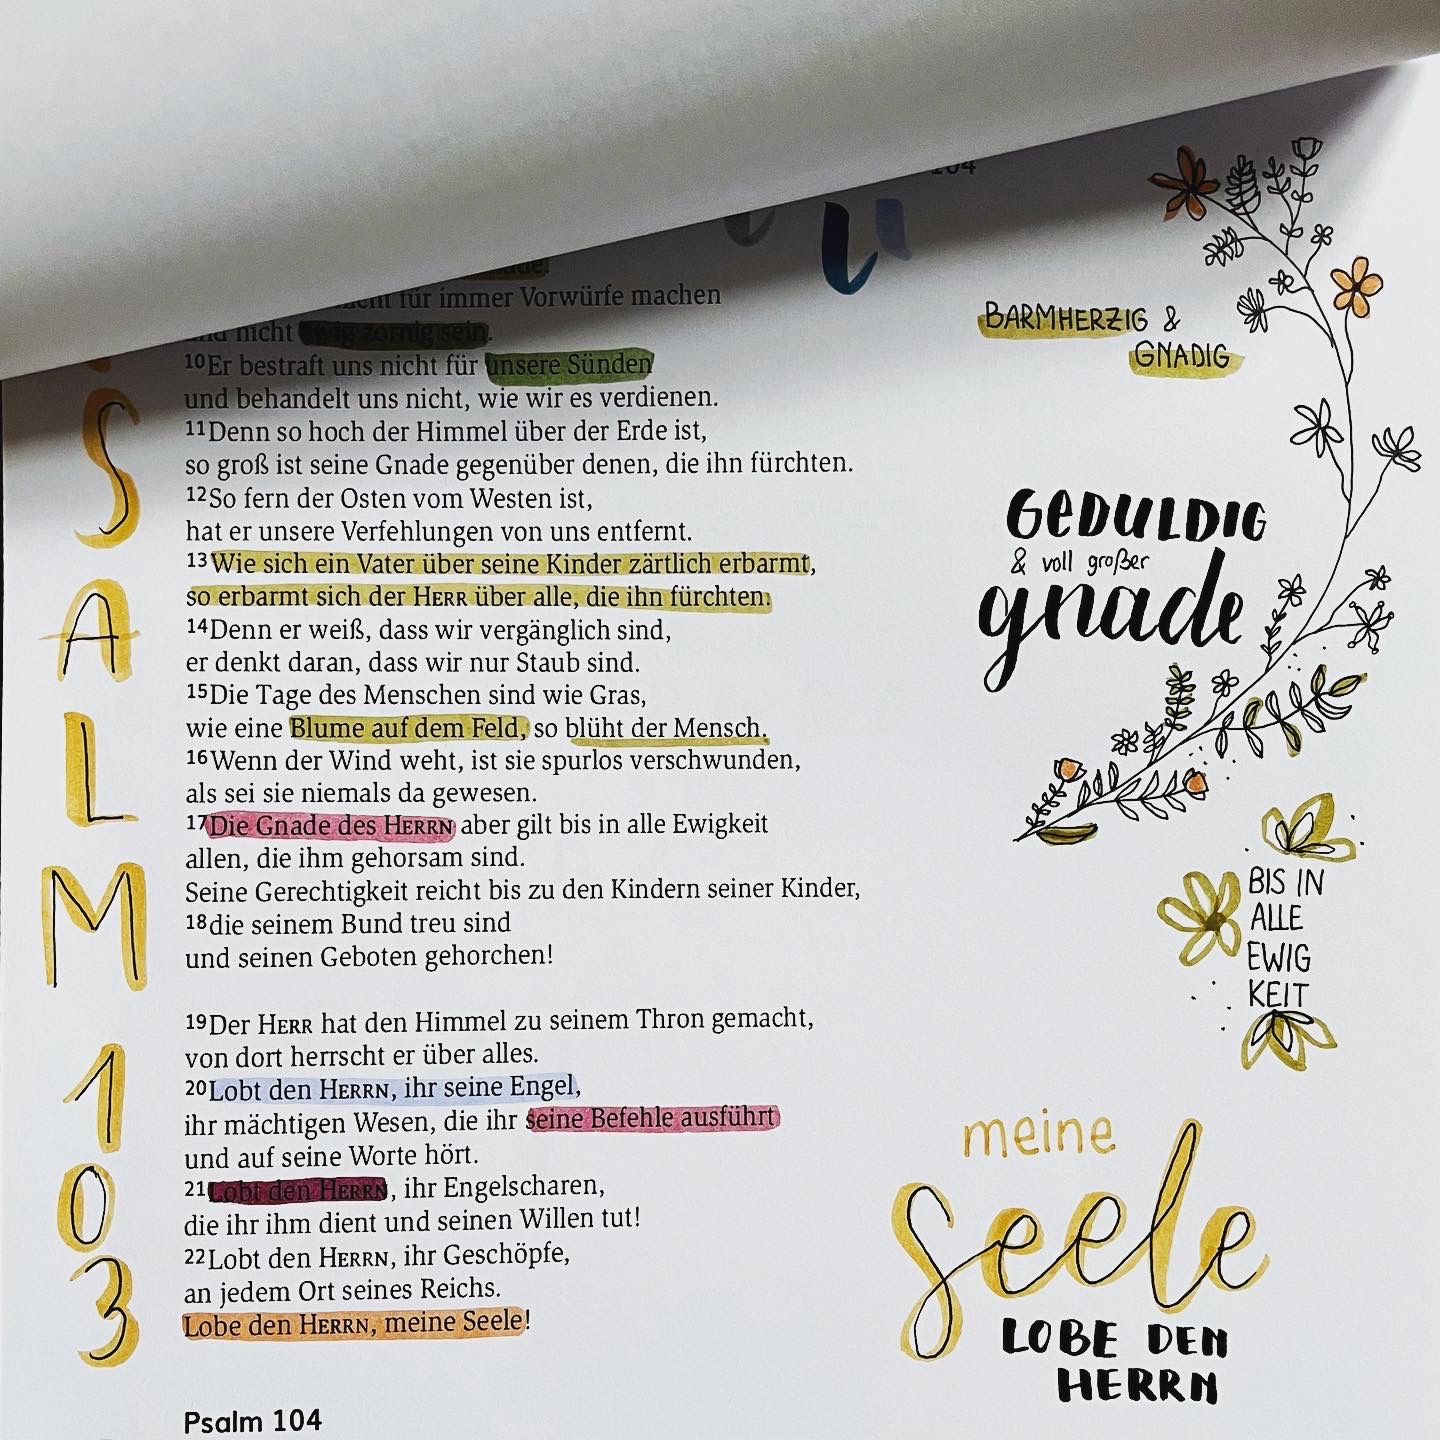 104
für immer Vorwürfe machen
nicht ewig zornig sein.
10Er bestraft uns nicht für unsere Sünden
und behandelt uns nicht, wie wir es verdienen.
11Denn so hoch der Himmel über der Erde ist,
so groß ist seine Gnade gegenüber denen, die ihn fürchten.
12So fern der Osten vom Westen ist,
hat er unsere Verfehlungen von uns entfernt.
13Wie sich ein Vater über seine Kinder zärtlich erbarmt,
so erbarmt sich der HERR über alle, die ihn fürchten.
14Denn er weiß, dass wir vergänglich sind,
er denkt daran, dass wir nur Staub sind.
15Die Tage des Menschen sind wie Gras,
wie eine Blume auf dem Feld, so blüht der Mensch.
16Wenn der Wind weht, ist sie spurlos verschwunden,
als sei sie niemals da gewesen.
17Die Gnade des HERRN aber gilt bis in alle Ewigkeit
allen, die ihm gehorsam sind.
Seine Gerechtigkeit reicht bis zu den Kindern seiner Kinder,
18die seinem Bund treu sind
und seinen Geboten gehorchen!
19Der HERR hat den Himmel zu seinem Thron gemacht,
von dort herrscht er über alles.
20Lobt den HERRN, ihr seine Engel,
ihr mächtigen Wesen, die ihr seine Befehle ausführt
und auf seine Worte hört.
21Lobt den HERRN, ihr Engelscharen,
die ihr ihm dient und seinen Willen tut!
22Lobt den HERRN, ihr Geschöpfe,
an jedem Ort seines Reichs.
Lobe den HERRN, meine Seele!
Psalm 104
SALM 103
BARMHERZIG &
GNADIG
GEDULDIG
& voll großer
gnade
BIS IN
ALLE
EWIG
KEIT
meine
seele
LOBE DEN
HERRN